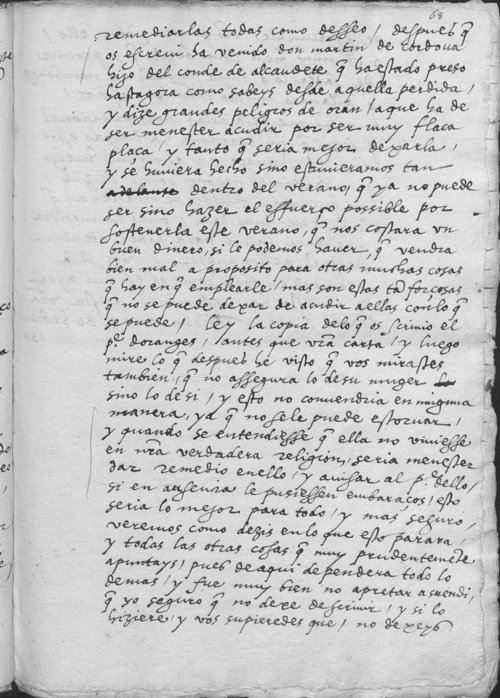 68
remediarlas todas como desseo / despues q̃
os escreui ha venido don martin de cordoua
hijo del conde de alcaudete q̃ ha estado preso
hastagora como sabeys desde aquella perdida /
y dize grandes peligros de oran / a que ha de
ser menester acudir por ser muy flaca
plaça / y tanto q̃ seria mejor dexarla /
y se huuiera hecho sino estuuieramos tan
adelante dentro del verano, q̃ ya no puede
ser sino hazer el esfuerço possible por
sostenerla este verano, q̃ nos costara vn
buen dinero, si le podemos hauer, q̃ vendra
bien mal a proposito para otras muchas cosas
q̃ hay en q̃ emplearle / mas son estas tã forçosas
q̃ no se puede dexar de acudir a ellas con lo q̃
se puede / ley la copia delo q̃ os scriuio el
p.e doranges, / antes que vr̃a carta / y luego
mire lo q̃ despues he visto q̃ vos mirastes
tambien, q̃ no assegura lo de su muger lo
sino lo de si, / y esto no conuendria en ninguna
manera, ya q̃ no sele puede estoruar, /
y quando se entendiesse q̃ ella no viuiesse
en nr̃a verdadera religion, seria menester
dar remedio en ello / y auisar al p.e dello /
si en ausencia le pusiessen embaraços, / esto
seria lo mejor para todo / y mas seguro,
veremos como dezis en lo que esto parara,
y todas las otras cosas q̃ muy prudentemẽte
apuntays / pues de aqui dependera todo lo
demas, / y fue muy bien no apretar a
q̃ yo seguro q̃ no dexe de scriuir, / y si lo
hiziere / y vos supieredes que, / no dexeys